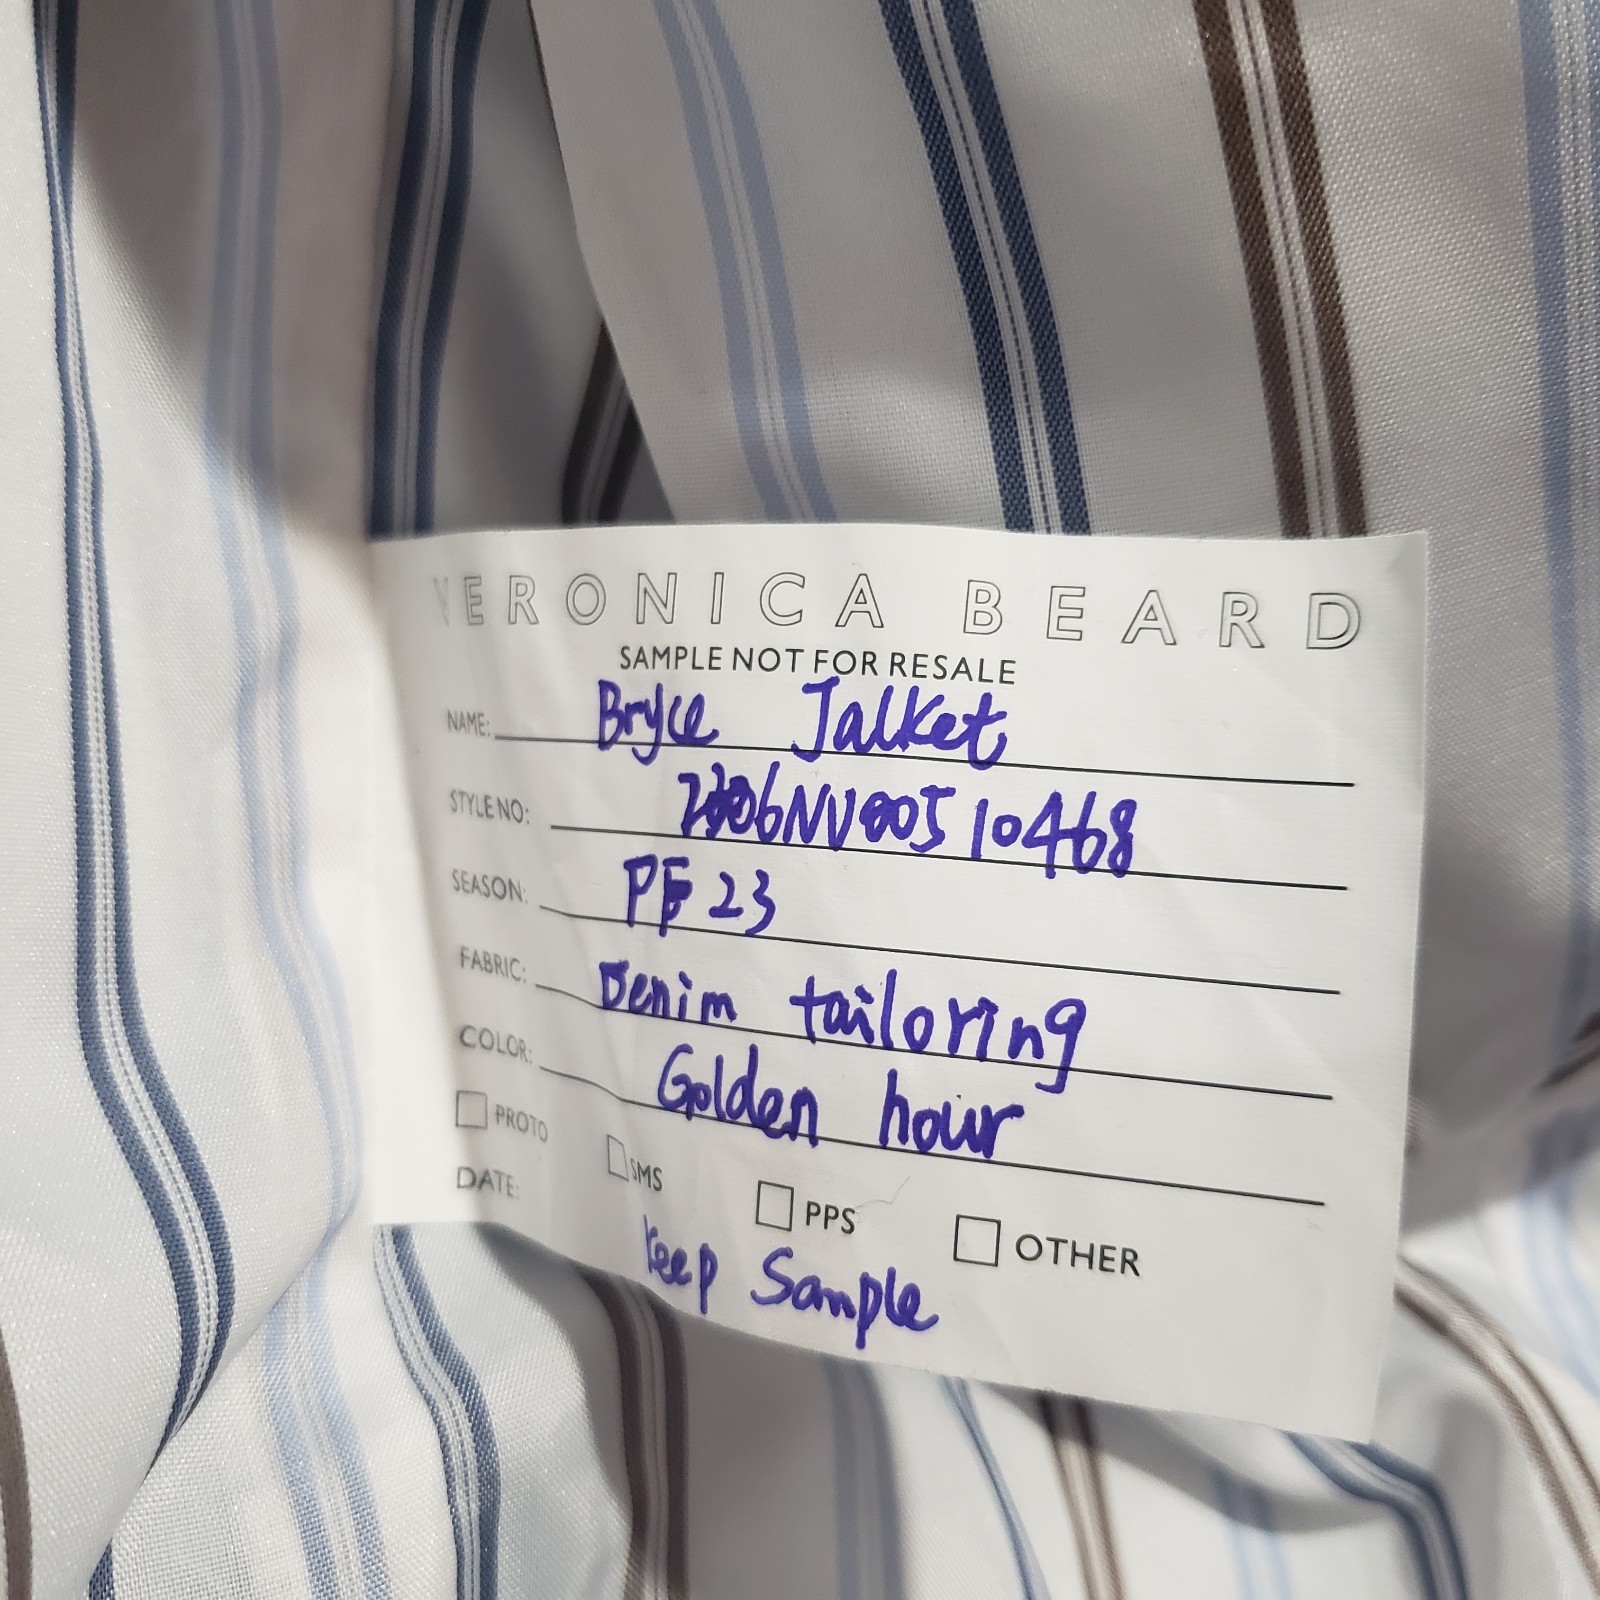 VERONICA BEARD
SAMPLE NOT FOR RESALE
NAME: Bryce Jalket
STYLE NO: 2306NV00510468
SEASON: PF 23
FABRIC: Denim tailoring
COLOR: Golden hour
PROTO SMS PPS OTHER
DATE:
Keep Sample